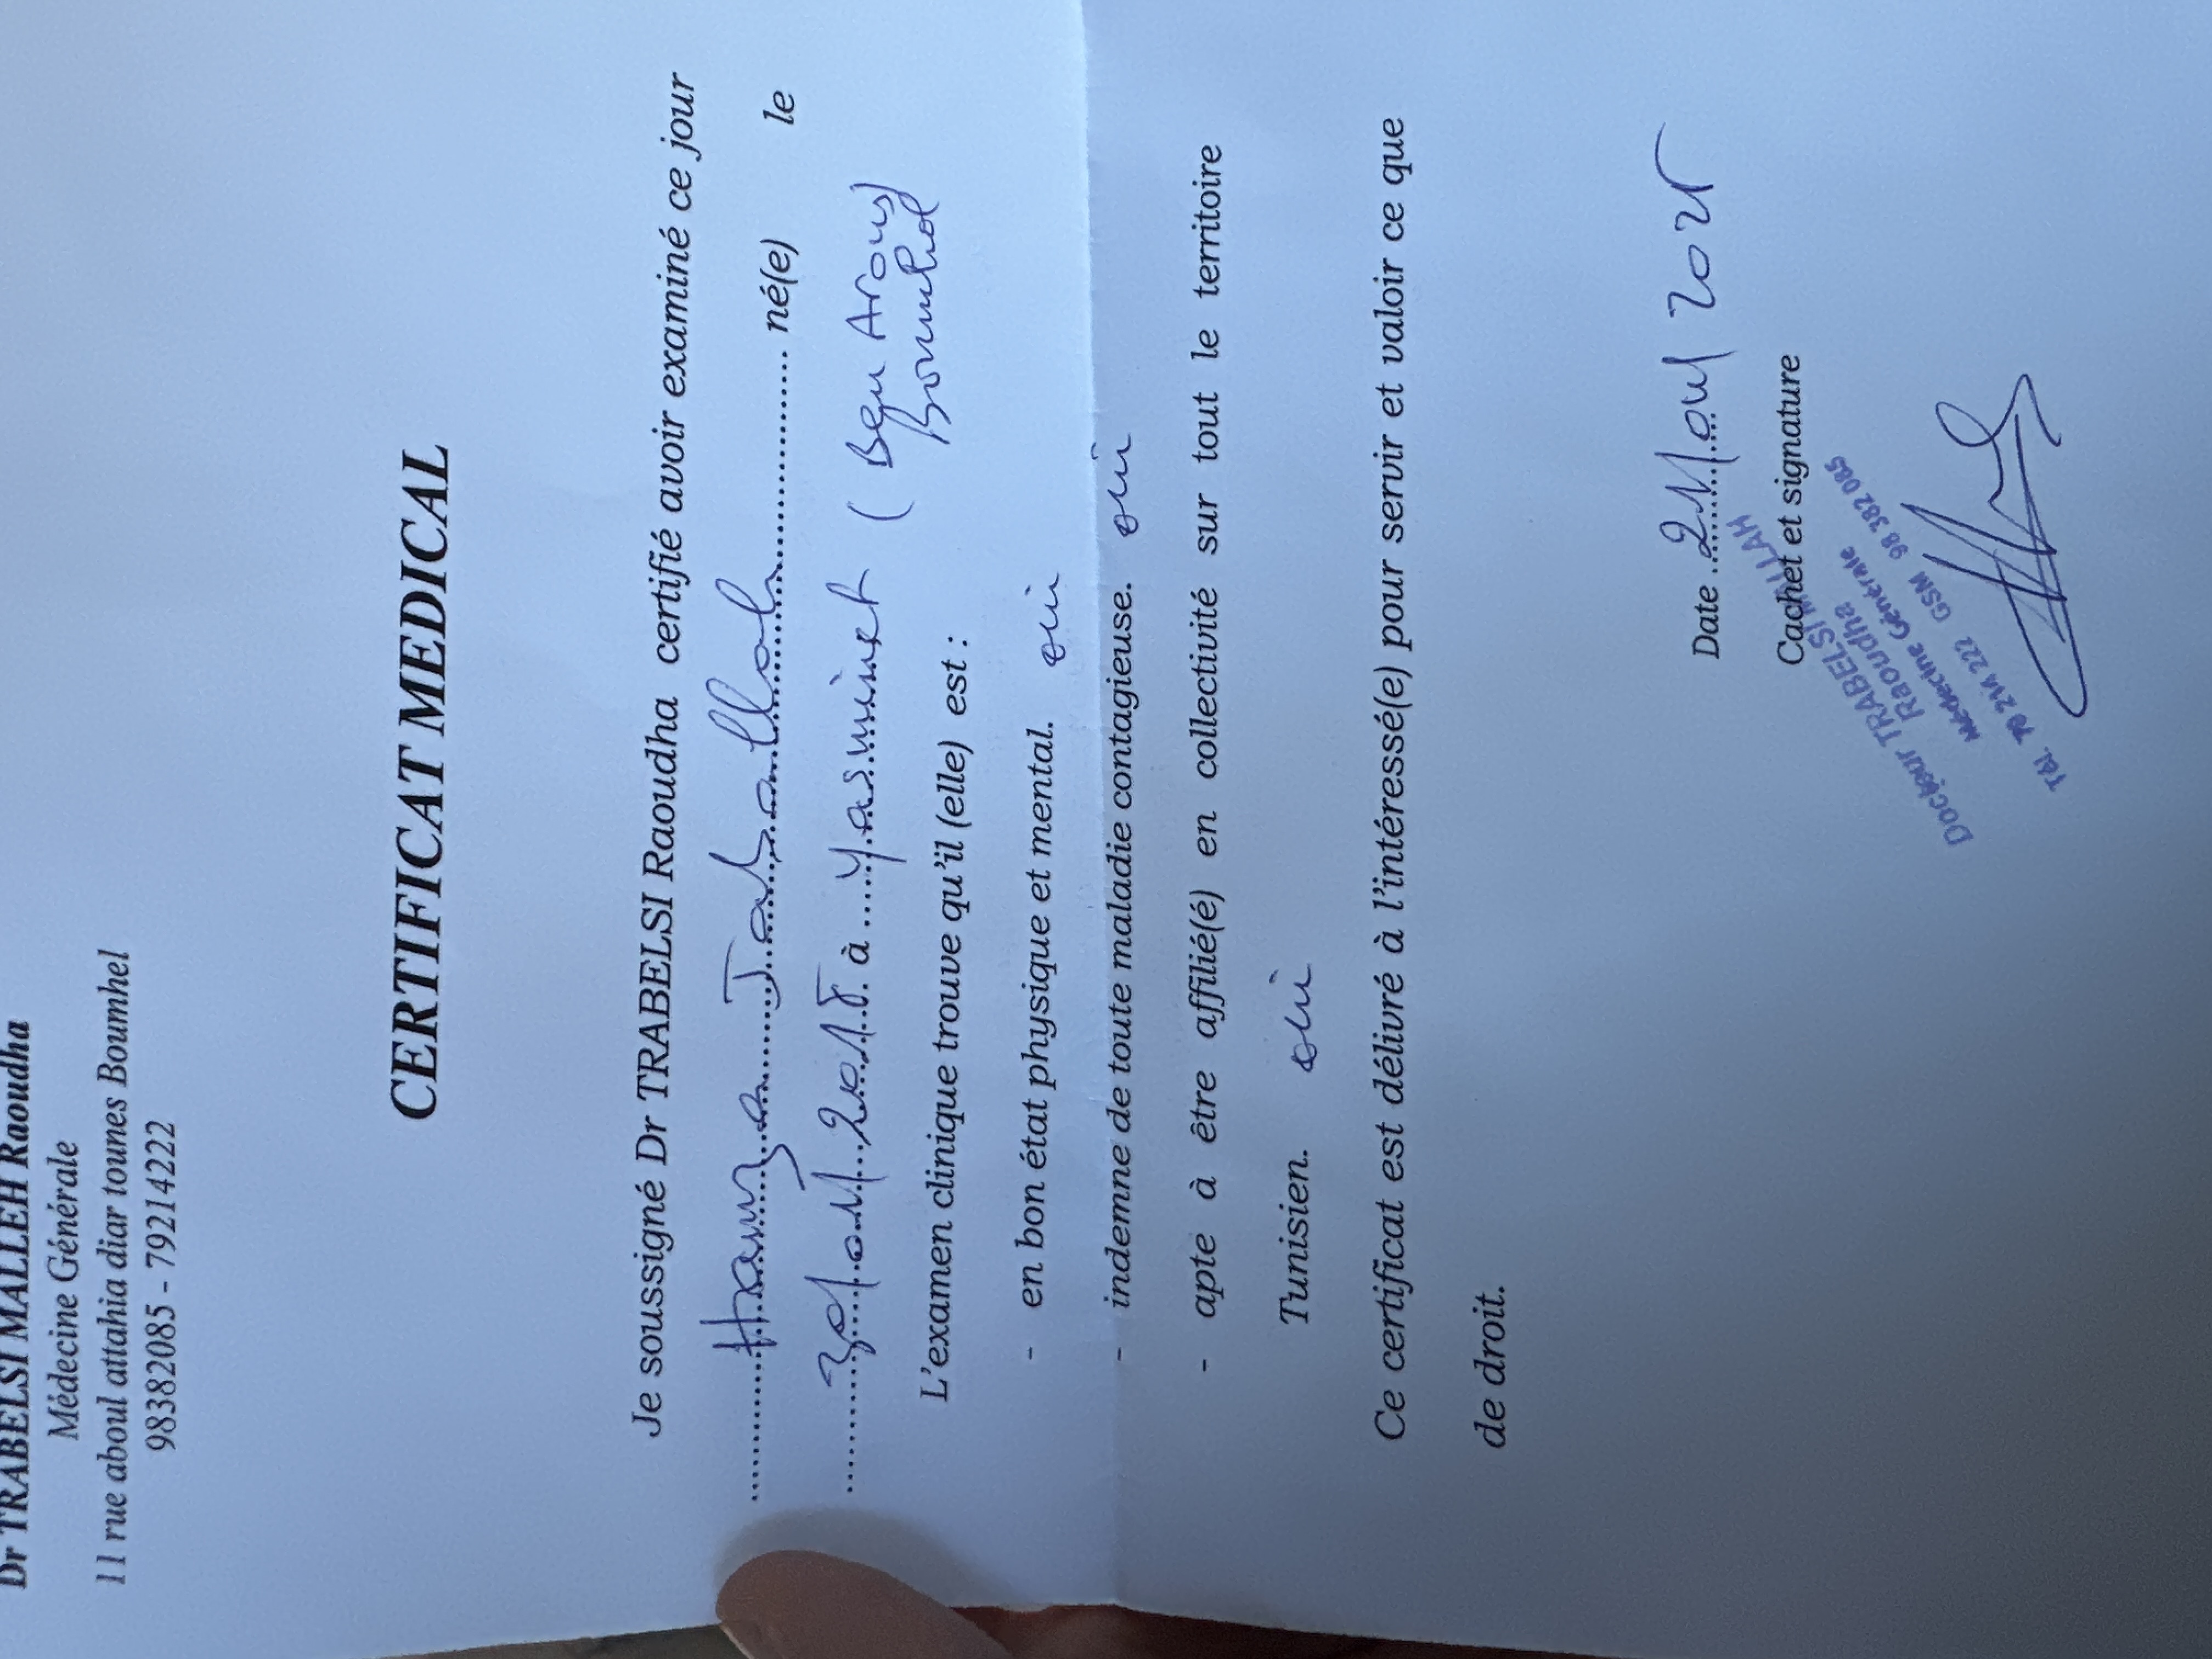 Dr TRABELSI MALLEH Raoudha
Médecine Générale
11 rue aboul attahia diar tounes Boumhel
98382085 - 79214222
CERTIFICAT MEDICAL
Je soussigné Dr TRABELSI Raoudha certifié avoir examiné ce jour
Hamza Jaballah né(e) le
à Yasminet ( Ben Arous)
Boumhel
L'examen clinique trouve qu'il (elle) est :
- en bon état physique et mental. oui
- indemne de toute maladie contagieuse. oui
- apte à être affilié(é) en collectivité sur tout le territoire
Tunisien. oui
Ce certificat est délivré à l'intéressé(e) pour servir et valoir ce que
de droit.
Date
Cachet et signature
Docteur TRABELSI MALLAH
Raoudha
Médecine Générale
Tél. 79 214 222 GSM 98 382 085